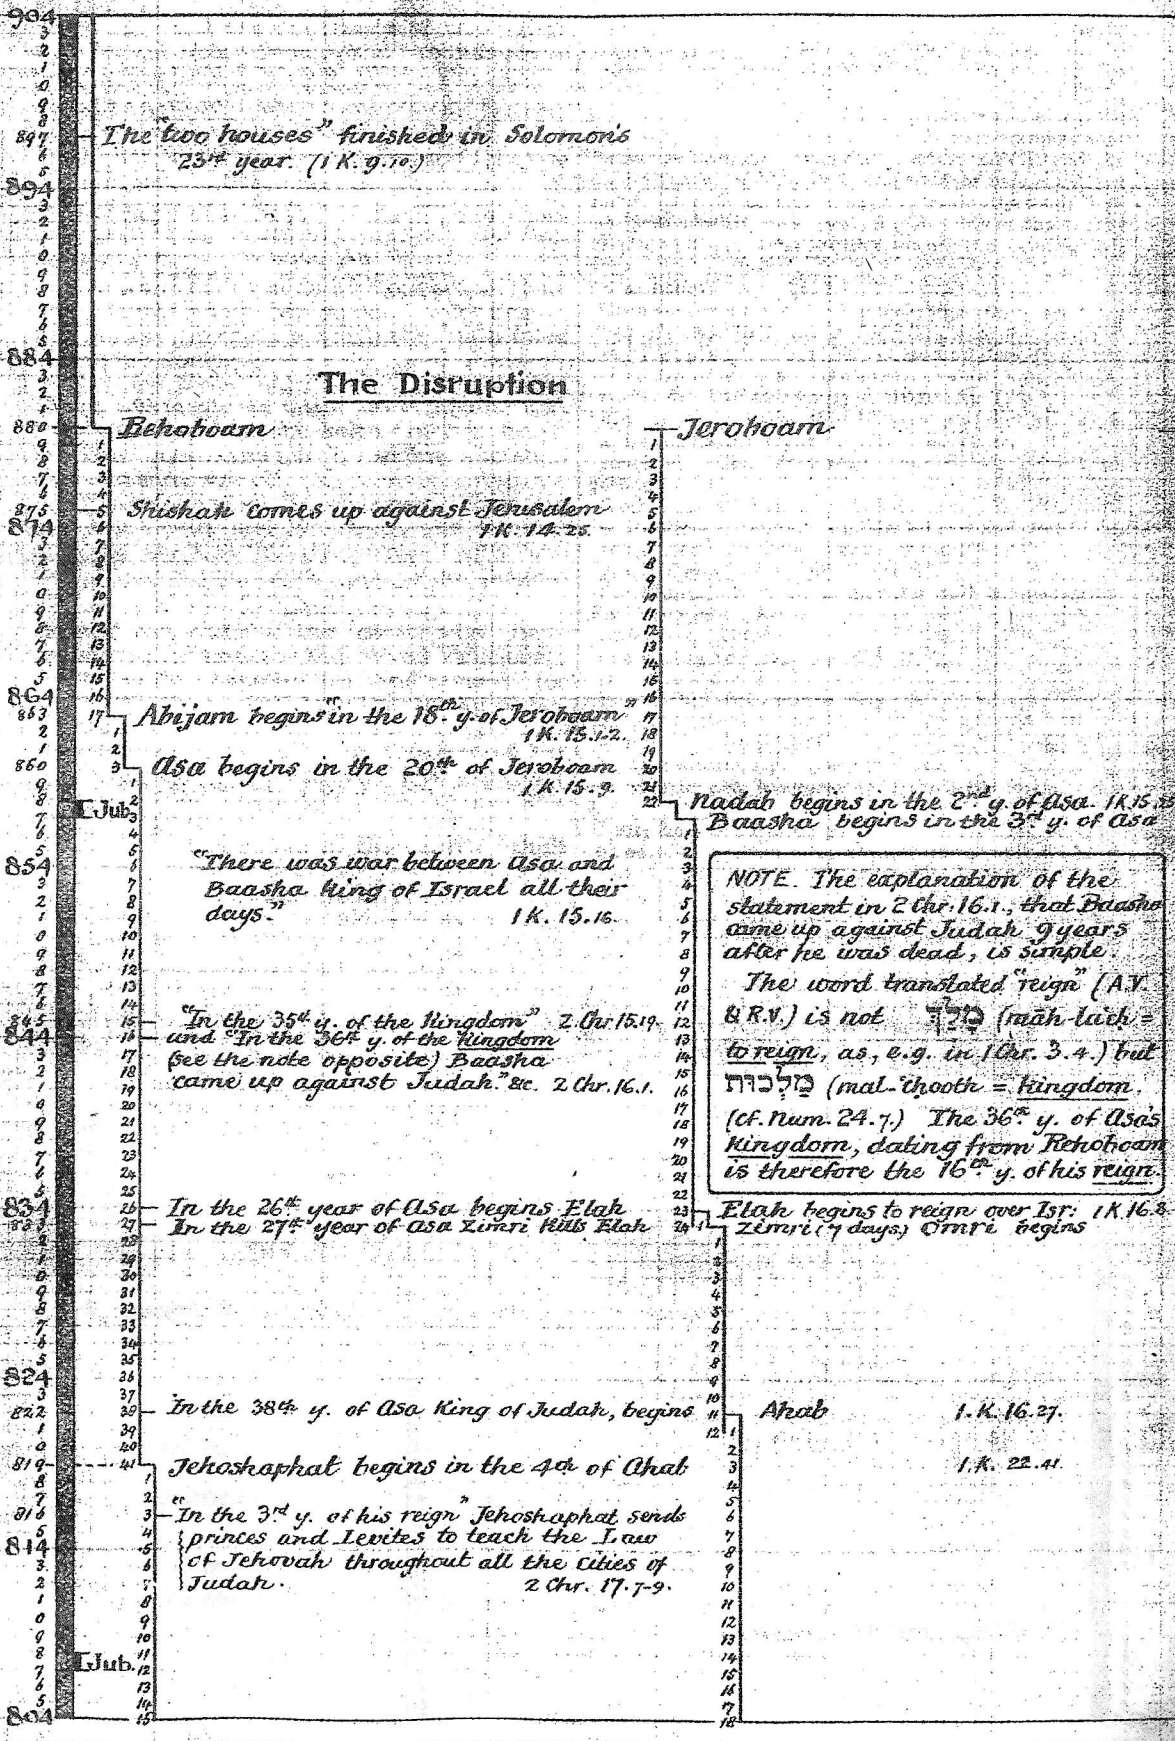 904
897
The "two houses" finished in Solomon's
23rd year. (1 K. 9.10.)
894
884
The Disruption
880
Rehoboam
Jeroboam
875
Shishak comes up against Jerusalem
1 K. 14.25.
874
864
863
Abijam begins "in the 18th y. of Jeroboam"
1 K. 15.1-2.
860
Asa begins in the 20th of Jeroboam
1 K 15.9.
Jub.
Nadab begins in the 2nd y. of Asa. 1 K 15.25
Baasha begins in the 3rd y. of Asa
854
"There was war between Asa and
Baasha King of Israel all their
days."
1 K. 15.16.
NOTE. The explanation of the
statement in 2 Chr. 16.1., that Baasha
came up against Judah 9 years
after he was dead, is simple.
The word translated "reign" (A.V.
& R.V.) is not מָלַךְ (māh-lach =
to reign, as, e.g. in 1 Chr. 3.4.) but
מַלְכוּת (mal-chooth = Kingdom.
(cf. Num. 24.7.) The 36th y. of Asa's
Kingdom, dating from Rehoboam
is therefore the 16th y. of his reign.
845
"In the 35th y. of the Kingdom" 2 Chr. 15.19.
844
and "In the 36th y. of the Kingdom
(see the note opposite) Baasha
came up against Judah." &c. 2 Chr. 16.1.
834
In the 26th year of Asa begins Elah
Elah begins to reign over Isr: 1 K 16.8.
833
In the 27th year of Asa Zimri kills Elah
Zimri (7 days) Omri begins
824
822
In the 38th y. of Asa King of Judah, begins
Ahab 1. K. 16.27.
819
Jehoshaphat begins in the 4th of Ahab
1. K. 22.41.
816
"In the 3rd y. of his reign" Jehoshaphat sends
princes and Levites to teach the Law
814
of Jehovah throughout all the Cities of
Judah. 2 Chr. 17.7-9.
Jub.
804